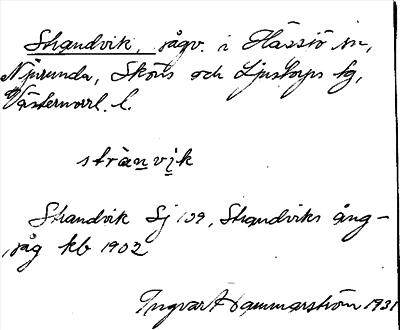 Strandvik, sågv. i Hässjö sn,
Njurunda, Sköns och Ljustorps tg,
Västernorrl. l.
strànvik
Strandvik Sj 139, Strandviks ång-
såg kb 1902
Ingvar Hammarström 1931